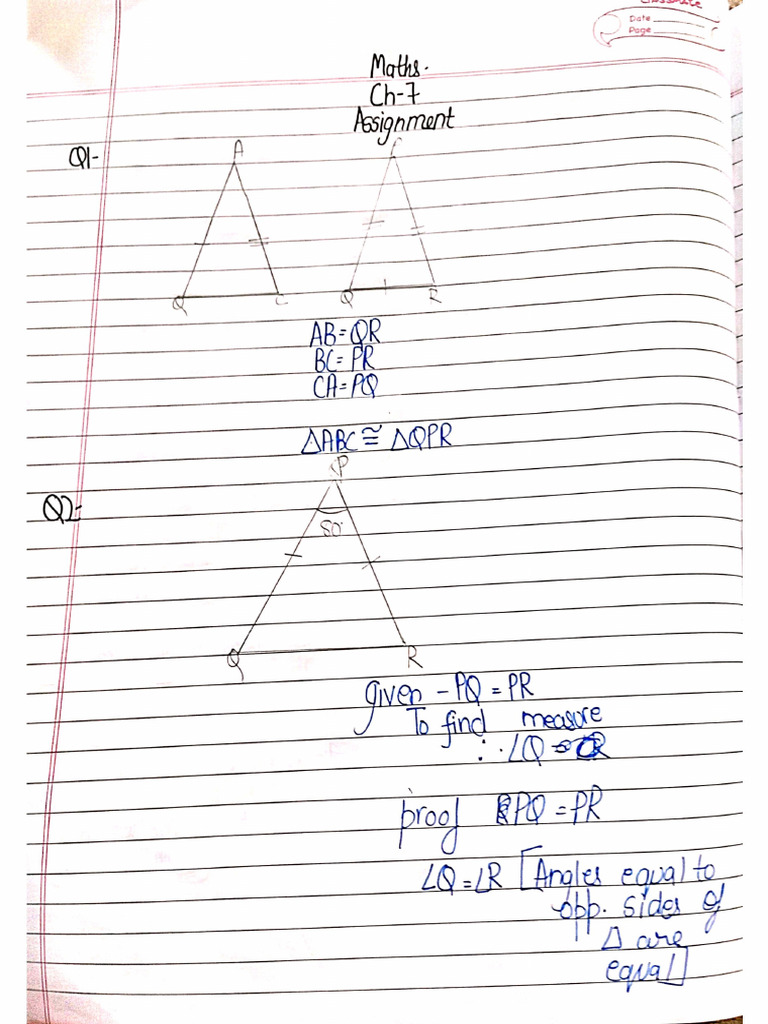 classmate
Date
Page
Maths.
Ch-7
Assignment
Q1-
A
Q C Q R
AB = QR
BC = PR
CA = PQ
△ABC ≅ △QPR
Q2-
P
80°
Q R
given - PQ = PR
To find measure
∴ ∠Q
proof PQ = PR
∠Q = ∠R [Angles equal to
opp. sides of
△ are
equal]